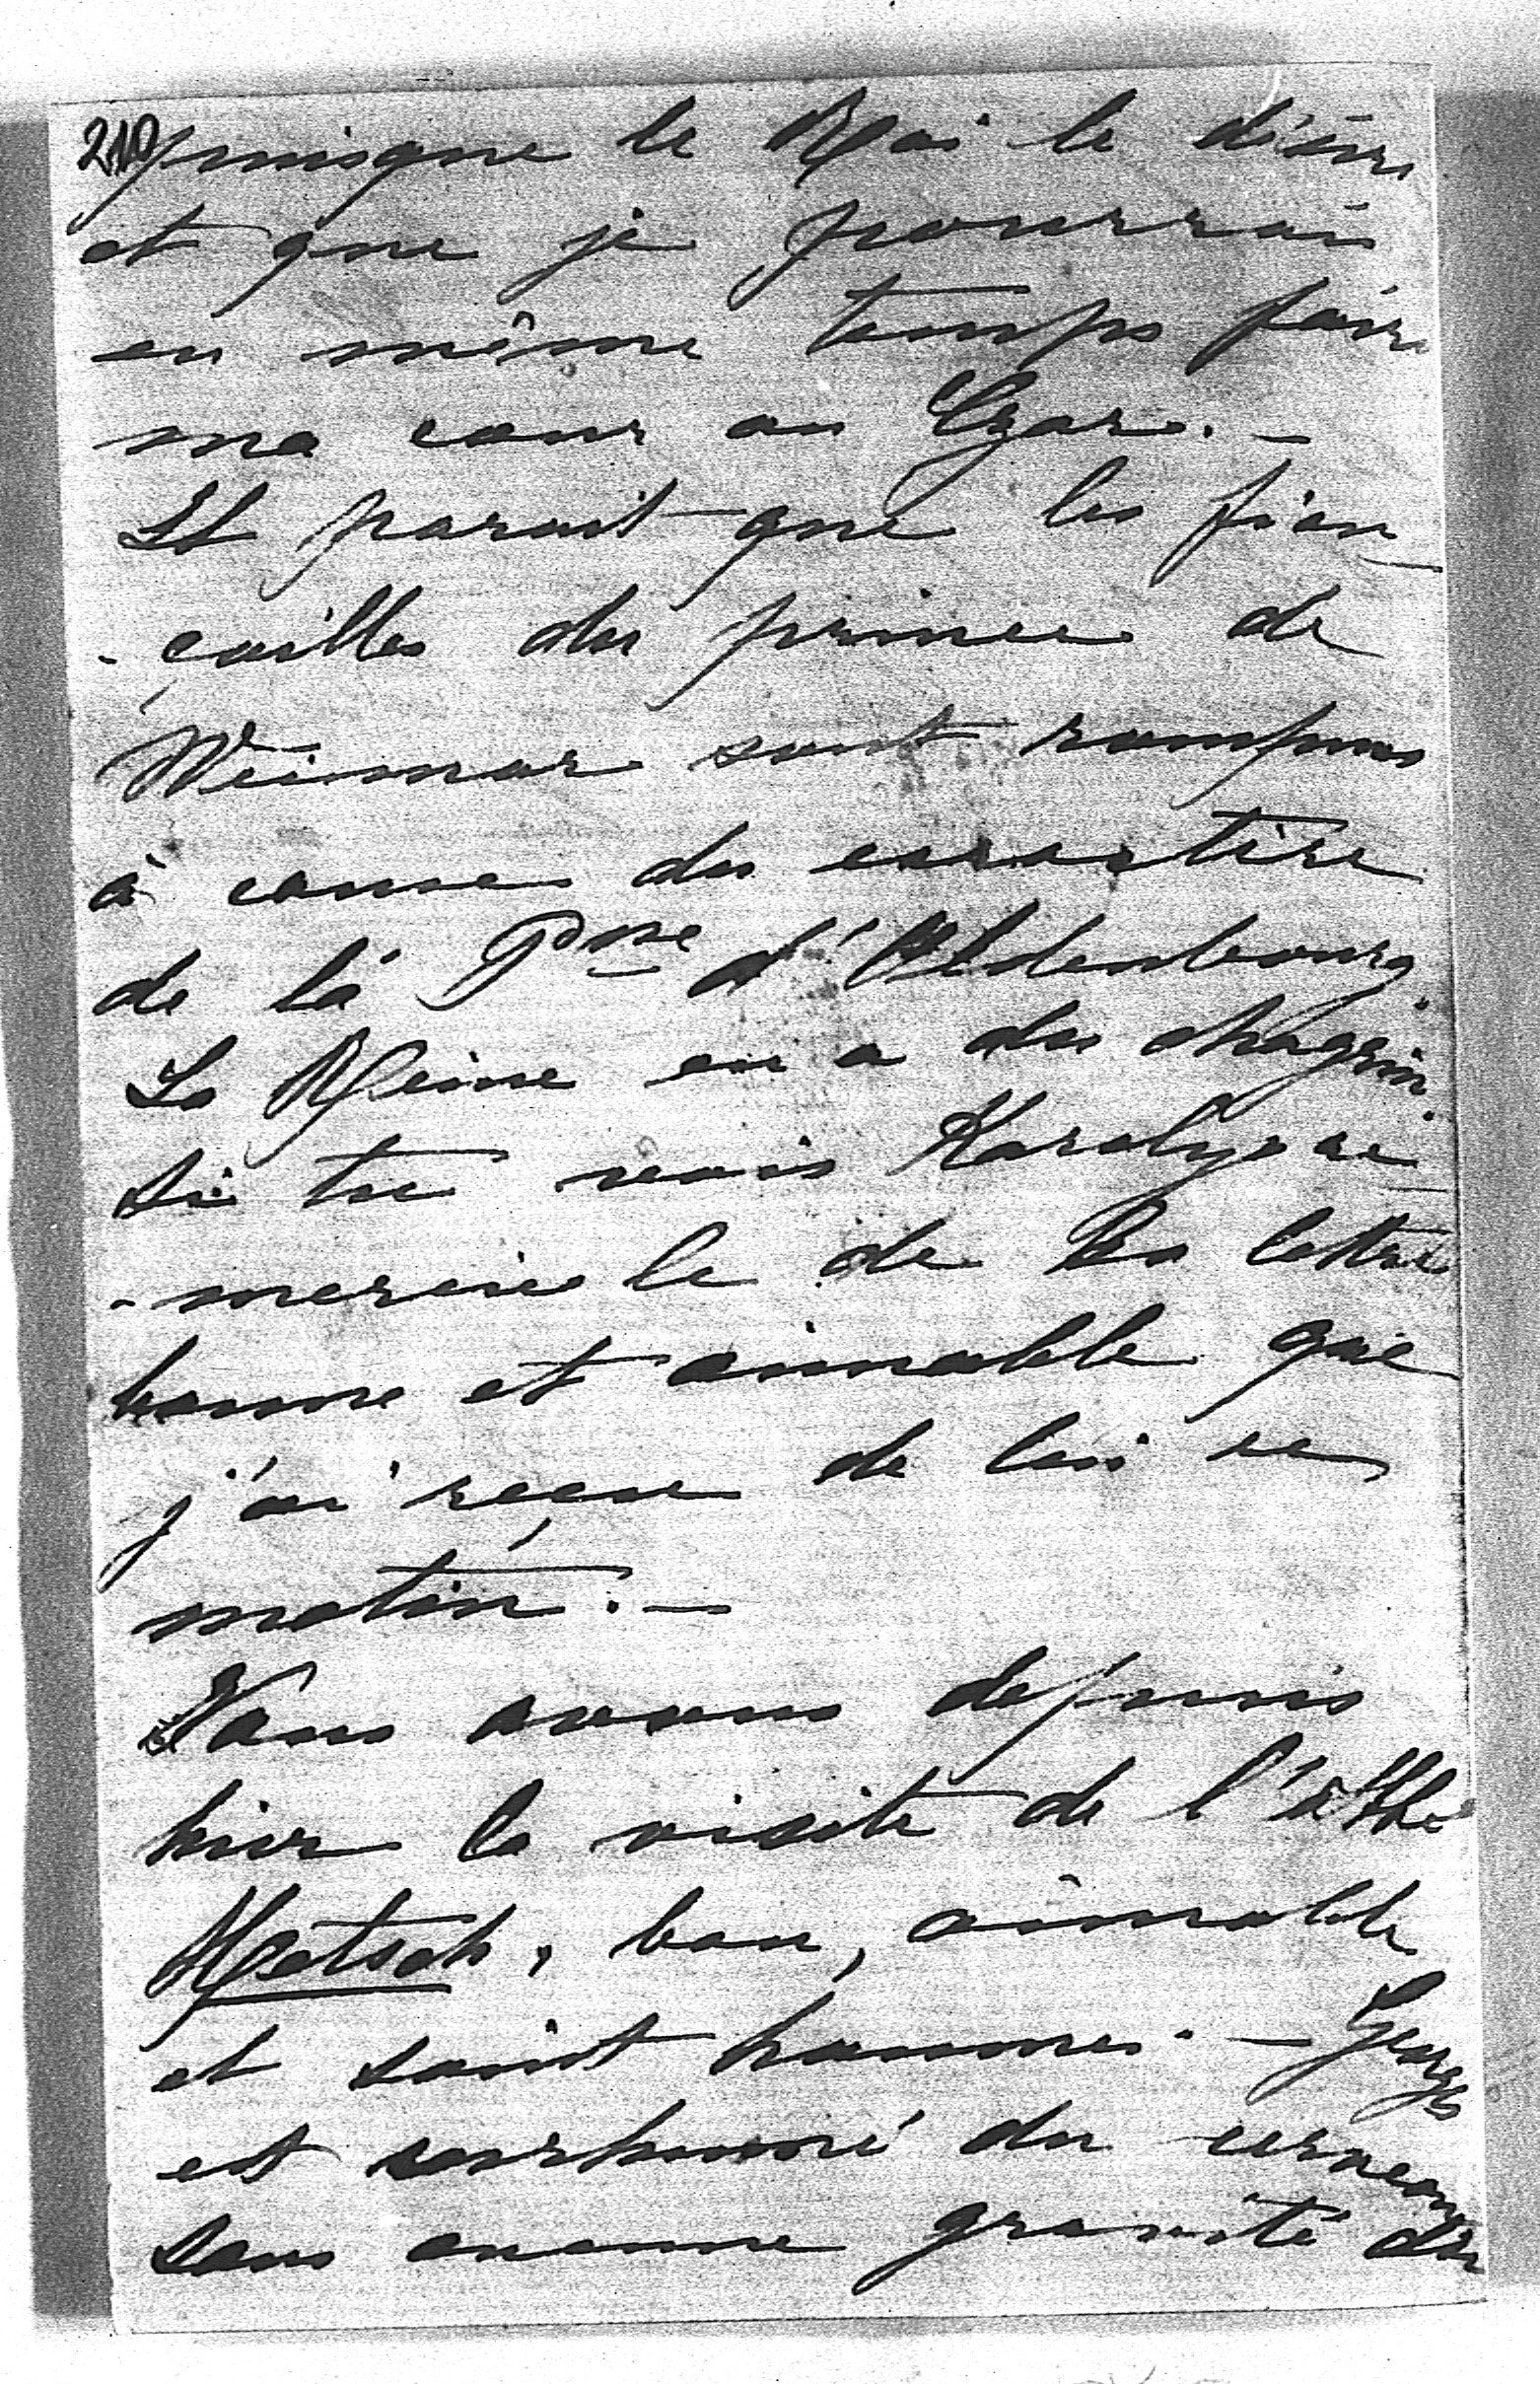 210
puisque le Roi le désire
et que je pourrai
en même temps faire
ma cour au Czar. —
Il parait que les fian
- cailles du prince de
Weimar sont rompues
à cause du caractère
de la Psse d'Oldenbourg.
La Reine en a du chagrin.
Si tu vois Karolyi re
- mercie le de la lettre
bonne et aimable que
j'ai reçue de lui ce
matin. —
Nous avons depuis
hier la visite de l'abbé
, bon, aimable
et saint homme. — Georges
est du cerveau
sans aucune gravité du